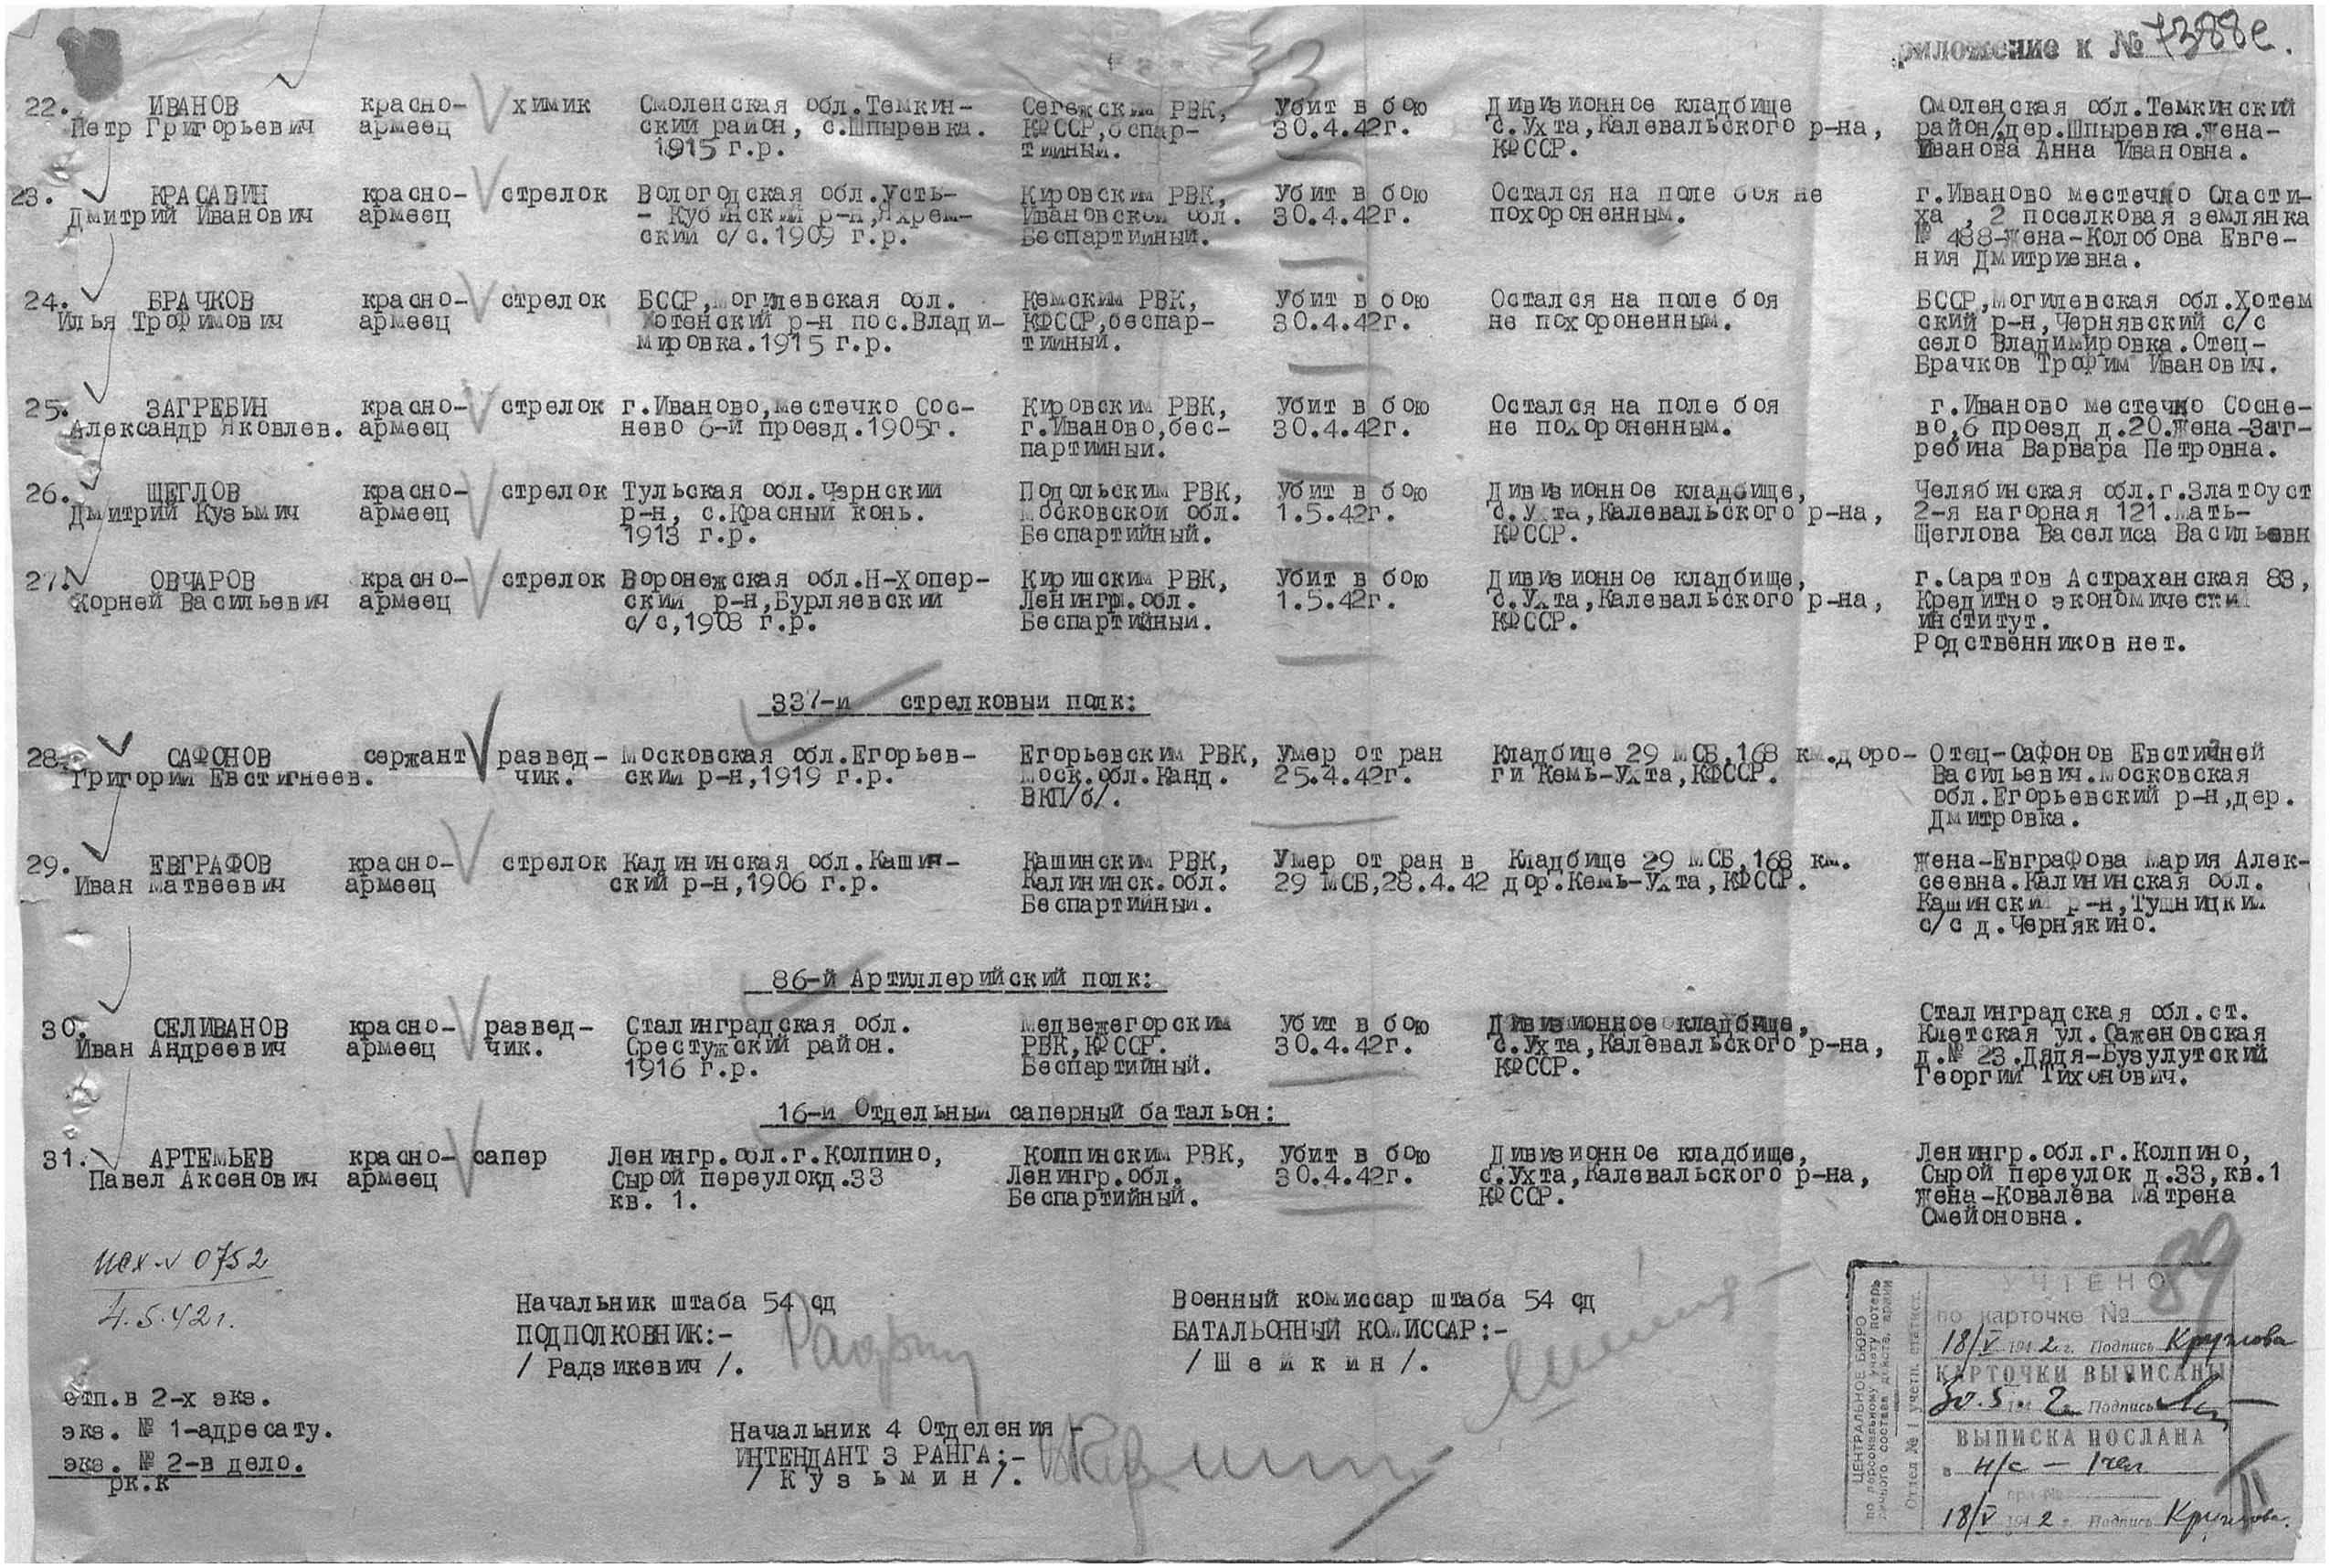 риложение к № 7388с.
22. ИВАНОВ
Петр Григорьевич
красно-
армеец
химик
Смоленская обл.Темкин-
ский район, с.Шпыревка.
1915 г.р.
Сегежским РВК,
КФССР,беспар-
тийный.
Убит в бою
30.4.42г.
Дивизионное кладбище
с.Ухта,Калевальского р-на,
КФССР.
Смоленская обл.Темкинский
район,дер.Шпыревка.Жена-
Иванова Анна Ивановна.
23. КРАСАВИН
Дмитрий Иванович
красно-
армеец
стрелок
Вологодская обл.Усть-
- Кубинский р-н,Яхрем-
ский с/с.1909 г.р.
Кировским РВК,
Ивановской обл.
Беспартийный.
Убит в бою
30.4.42г.
Остался на поле боя не
похороненным.
г.Иваново местечко Сласти-
ха , 2 поселковая землянка
№ 488-Жена-Колобова Евге-
ния Дмитриевна.
24. БРАЧКОВ
Илья Трофимович
красно-
армеец
стрелок
БССР,Могилевская обл.
Хотенский р-н пос.Влади-
мировка.1915 г.р.
Кемским РВК,
КФССР,беспар-
тийный.
Убит в бою
30.4.42г.
Остался на поле боя
не похороненным.
БССР,Могилевская обл.Хотем
ский р-н,Чернявский с/с
село Владимировка.Отец-
Брачков Трофим Иванович.
25. ЗАГРЕБИН
Александр Яковлев.
красно-
армеец
стрелок
г.Иваново,местечко Сос-
нево 6-й проезд.1905г.
Кировским РВК,
г.Иваново,бес-
партийный.
Убит в бою
30.4.42г.
Остался на поле боя
не похороненным.
г.Иваново местечко Сосне-
во,6 проезд д.20.Жена-Заг-
ребина Варвара Петровна.
26. ЩЕГЛОВ
Дмитрий Кузьмич
красно-
армеец
стрелок
Тульская обл.Чернский
р-н, с.Красный конь.
1913 г.р.
Подольским РВК,
Московской обл.
Беспартийный.
Убит в бою
1.5.42г.
Дивизионное кладбище,
с.Ухта,Калевальского р-на,
КФССР.
Челябинская обл.г.Златоуст
2-я нагорная 121.Мать-
Щеглова Васелиса Васильевн
27. ОВЧАРОВ
Корней Васильевич
красно-
армеец
стрелок
Воронежская обл.Н-Хопер-
ский р-н,Бурляевский
с/с,1903 г.р.
Киришским РВК,
Ленингр.обл.
Беспартийный.
Убит в бою
1.5.42г.
Дивизионное кладбище,
с.Ухта,Калевальского р-на,
КФССР.
г.Саратов Астраханская 83,
Кредитно экономический
институт.
Родственников нет.
337-й стрелковый полк:
28. САФОНОВ
Григорий Евстигнеев.
сержант
развед-
чик.
Московская обл.Егорьев-
ский р-н,1919 г.р.
Егорьевским РВК,
Моск.обл.Канд.
ВКП/б/.
Умер от ран
25.4.42г.
Кладбище 29 МСБ,168 км.доро-
ги Кемь-Ухта,КФССР.
Отец-Сафонов Евстигней
Васильевич.Московская
обл.Егорьевский р-н,дер.
Дмитровка.
29. ЕВГРАФОВ
Иван Матвеевич
красно-
армеец
стрелок
Калининская обл.Кашин-
ский р-н,1906 г.р.
Кашинским РВК,
Калининск.обл.
Беспартийный.
Умер от ран в
29 МСБ,28.4.42
Кладбище 29 МСБ,168 км.
дор.Кемь-Ухта,КФССР.
Жена-Евграфова Мария Алек-
сеевна.Калининская обл.
Кашинский р-н,Тушницкий
с/с д.Чернякино.
86-й Артиллерийский полк:
30. СЕЛИВАНОВ
Иван Андреевич
красно-
армеец
развед-
чик.
Сталинградская обл.
Срестужский район.
1916 г.р.
Медвежегорским
РВК,КФССР.
Беспартийный.
Убит в бою
30.4.42г.
Дивизионное кладбище,
с.Ухта,Калевальского р-на,
КФССР.
Сталинградская обл.ст.
Клетская ул.Саженовская
д.№ 23.Дядя-Бузулутский
Георгий Тихонович.
16-й Отдельный саперный батальон:
31. АРТЕМЬЕВ
Павел Аксенович
красно-
армеец
сапер
Ленингр.обл.г.Колпино,
Сырой переулокд.33
кв. 1.
Колпинским РВК,
Ленингр.обл.
Беспартийный.
Убит в бою
30.4.42г.
Дивизионное кладбище,
с.Ухта,Калевальского р-на,
КФССР.
Ленингр.обл.г.Колпино,
Сырой переулок д.33,кв.1
Жена-Ковалева Матрена
Смейоновна.
исх.№ 0752
4.5.42г.
Начальник штаба 54 сд
ПОДПОЛКОВНИК:-
/ Радзикевич /.
Военный комиссар штаба 54 сд
БАТАЛЬОННЫЙ КОМИССАР:-
/ Ш е й к и н /.
отп.в 2-х экз.
экз. № 1-адресату.
экз. № 2-в дело.
рк.к
Начальник 4 Отделения -
ИНТЕНДАНТ 3 РАНГА:-
/ К у з ь м и н /.
89
ЦЕНТРАЛЬНОЕ БЮРО
по персональному учету потерь
личного состава действ. армии
Отдел № 1 учетн. статист.
УЧТЕНО
по карточке №
18/V 1942 г. Подпись Круглова
КАРТОЧКИ ВЫПИСАНЫ
30.5. 2 Подпись
ВЫПИСКА ПОСЛАНА
в н/с - 1 чел
18/V 1942 г. Подпись Круглова.